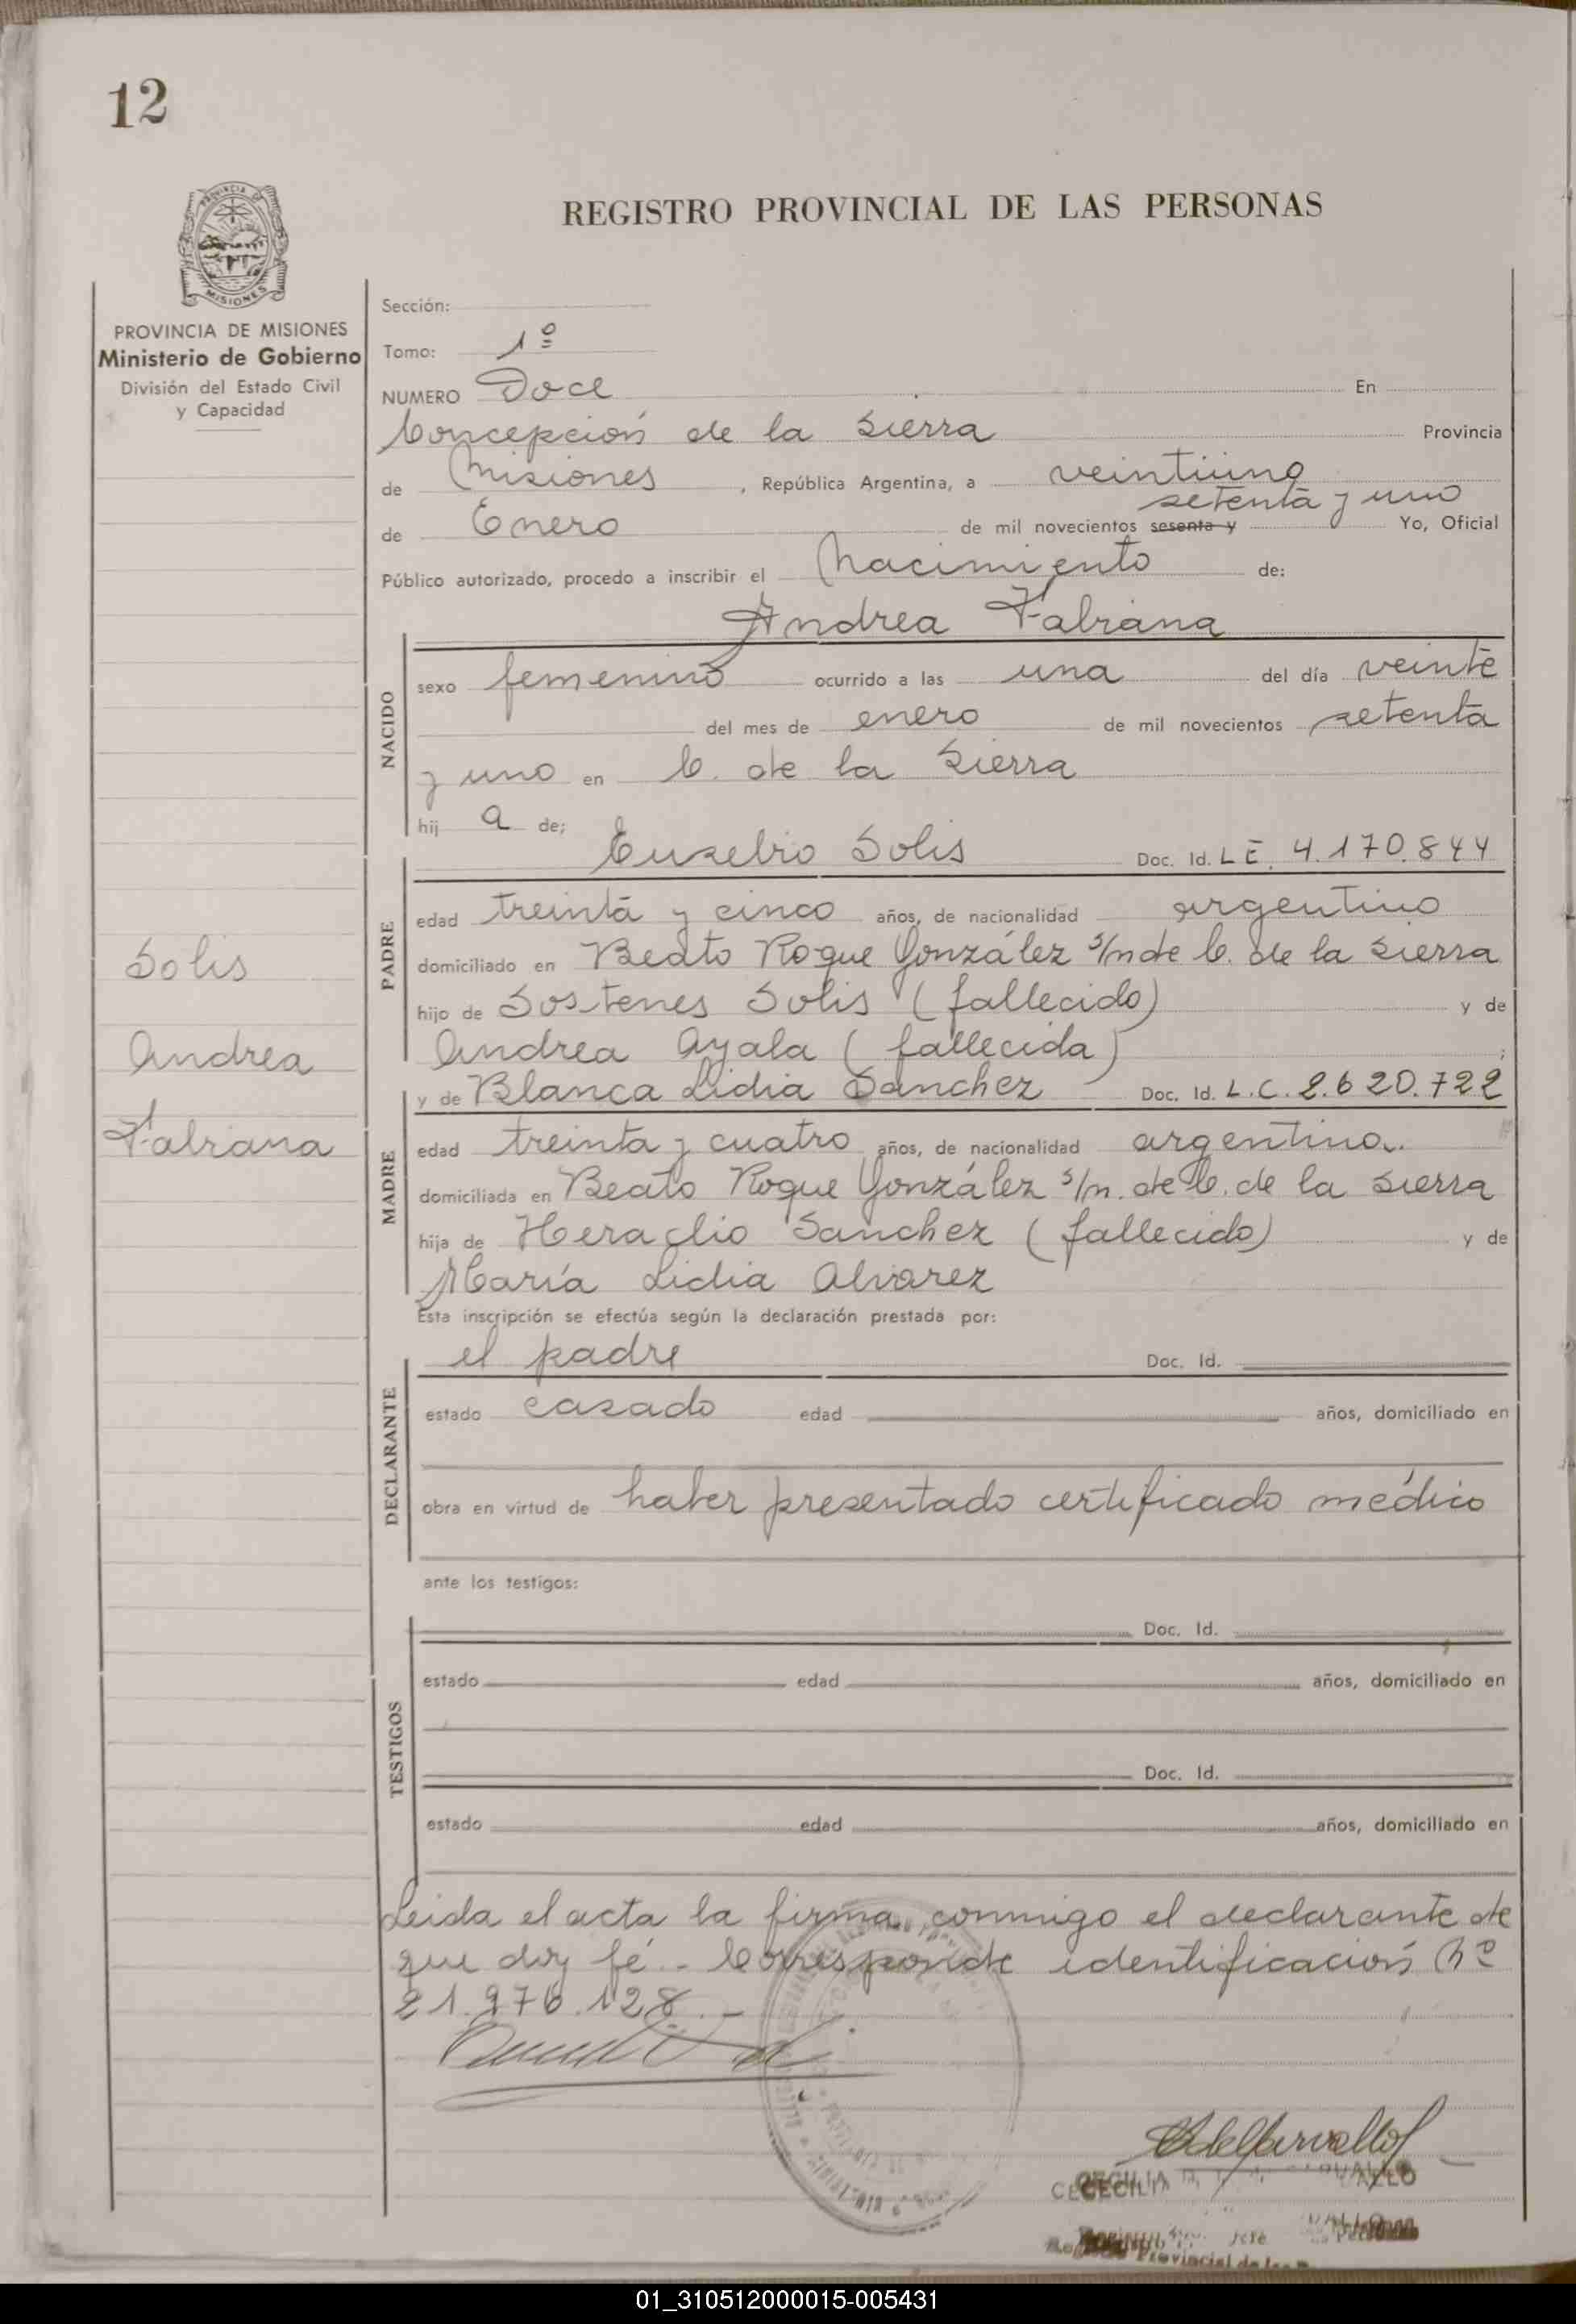 12
PROVINCIA DE MISIONES
Ministerio de Gobierno
División del Estado Civil
y Capacidad
Solis
Andrea
Fabiana
REGISTRO PROVINCIAL DE LAS PERSONAS
Sección:
Tomo: 1º
NUMERO Doce En
Concepción de la Sierra Provincia
de Misiones, República Argentina, a veintiuno
setenta y uno
de Enero de mil novecientos sesenta y Yo, Oficial
Público autorizado, procedo a inscribir el Nacimiento de:
Andrea Fabiana
NACIDO
sexo femenino ocurrido a las una del día veinte
del mes de enero de mil novecientos setenta
y uno en C. de la Sierra
hij a de;
Eusebio Solis Doc. Id. L E. 4.170.844
PADRE
edad treinta y cinco años, de nacionalidad argentino
domiciliado en Beato Roque González s/n de C. de la Sierra
hijo de Sostenes Solis (fallecido) y de
Andrea Ayala (fallecida) ;
y de Blanca Lidia Sanchez Doc. Id. L.C. 2.620.722
MADRE
edad treinta y cuatro años, de nacionalidad argentina.
domiciliada en Beato Roque González s/n. de C. de la Sierra
hija de Heraclio Sanchez (fallecido) y de
María Lidia Alvarez
Esta inscripción se efectúa según la declaración prestada por:
el padre Doc. Id.
DECLARANTE
estado casado edad años, domiciliado en
obra en virtud de haber presentado certificado médico
ante los testigos:
Doc. Id.
TESTIGOS
estado edad años, domiciliado en
Doc. Id.
estado edad años, domiciliado en
Leida el acta la firma conmigo el declarante de
que doy fé.- Corresponde identificación Nº
21.976.128.-
CECILIA
Provincial de
01_310512000015-005431